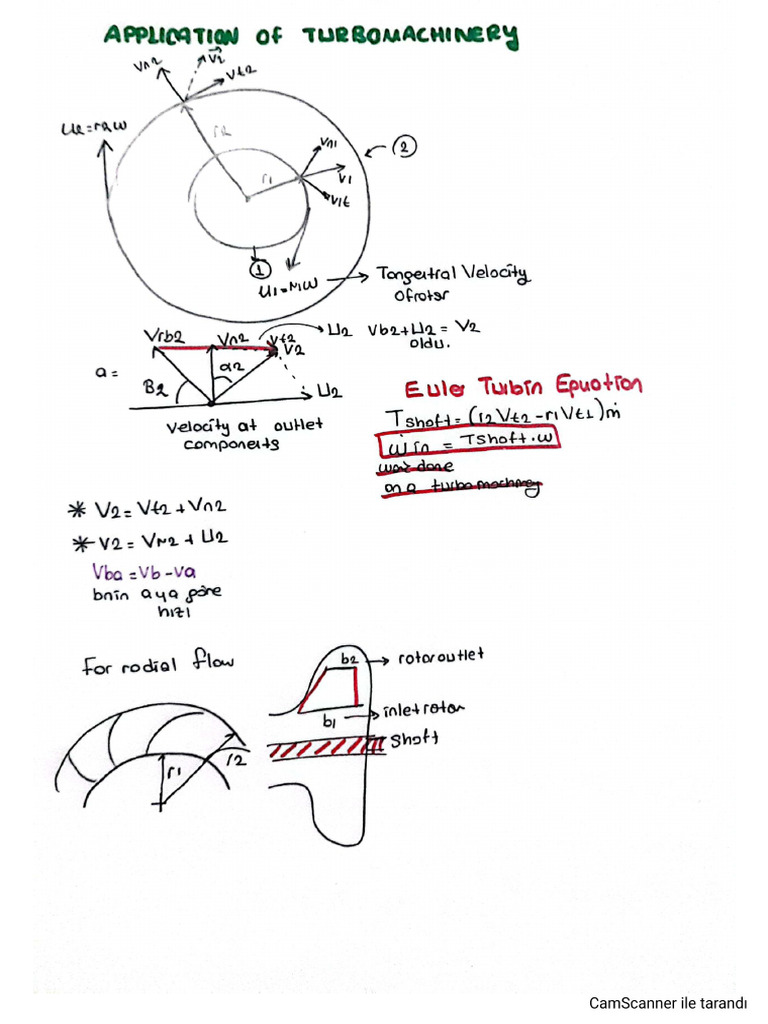 APPLICATION OF TURBOMACHINERY
Vn2
V2
Vt2
U2=r2w
r2
Vn1
2
r1
V1
V1t
1
U1=r1w
Tangentral Velocity
Ofrotor
Vrb2
Vn2
Vt2
V2
U2
Vb2+U2 = V2
oldu.
a=
B2
α2
U2
Velocity at outlet
components
Euler Turbin Epuation
Tshaft=(r2Vt2-r1Vt1)ṁ
ẇin = Tshaft.w
work done
on a turbomachiney
* V2=Vt2+Vn2
* V2= Vr2+U2
Vba=Vb-Va
bnin aya göre
hızı
For radial flow
b2
rotoroutlet
b1
inletrotor
Shaft
r1
r2
CamScanner ile tarandı